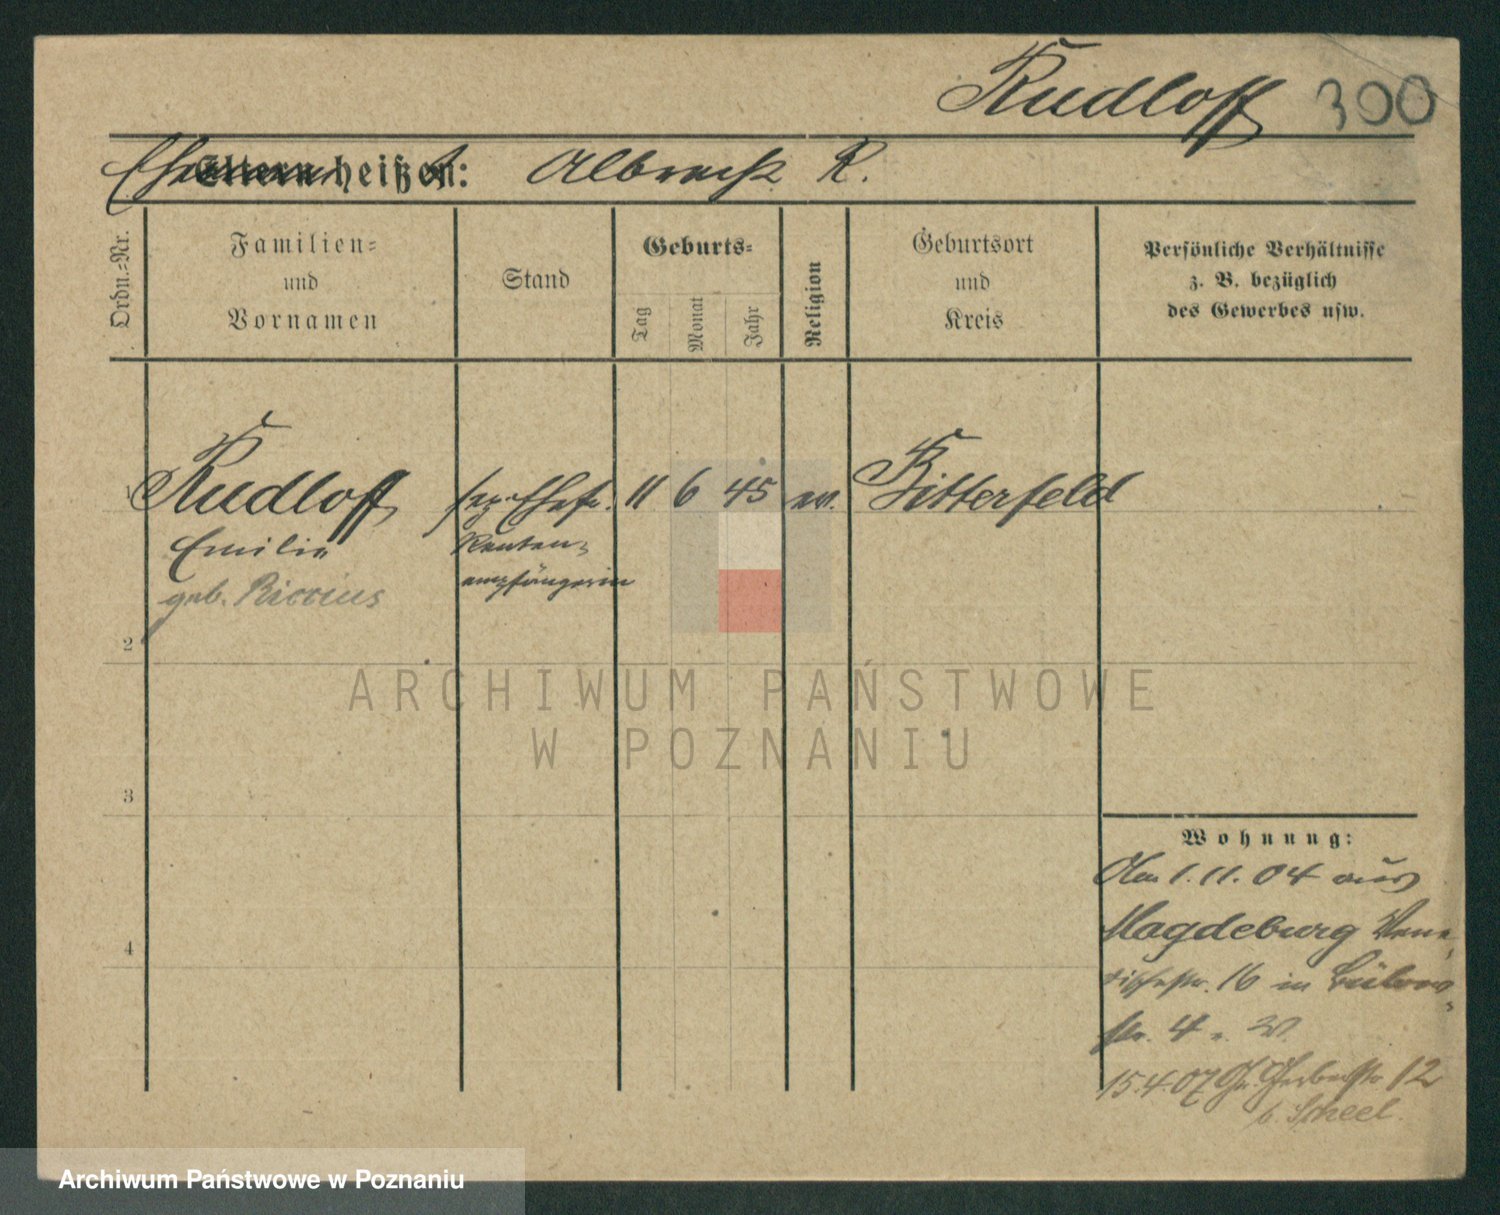 Rudloff 300
Eltern heißen: Albrecht R.
Ordn.-Nr.
Familien-
und
Vornamen
Stand
Geburts-
Tag
Monat
Jahr
Religion
Geburtsort
und
Kreis
Persönliche Verhältnisse
z. B. bezüglich
des Gewerbes usw.
1 Rudloff sep. Ehefr. 11 6 45 ev. Bitterfeld
Emilie Renten-
geb. Riccius empfängerin
2
3
4
ARCHIWUM PAŃSTWOWE
W POZNANIU
Wohnung:
Am 1. 11. 04 aus
Magdeburg Vene-
tischestr. 16 in Bülow-
str. 4
15.4.07 Gr. Gerberstr 12
b. Scheel.
Archiwum Państwowe w Poznaniu